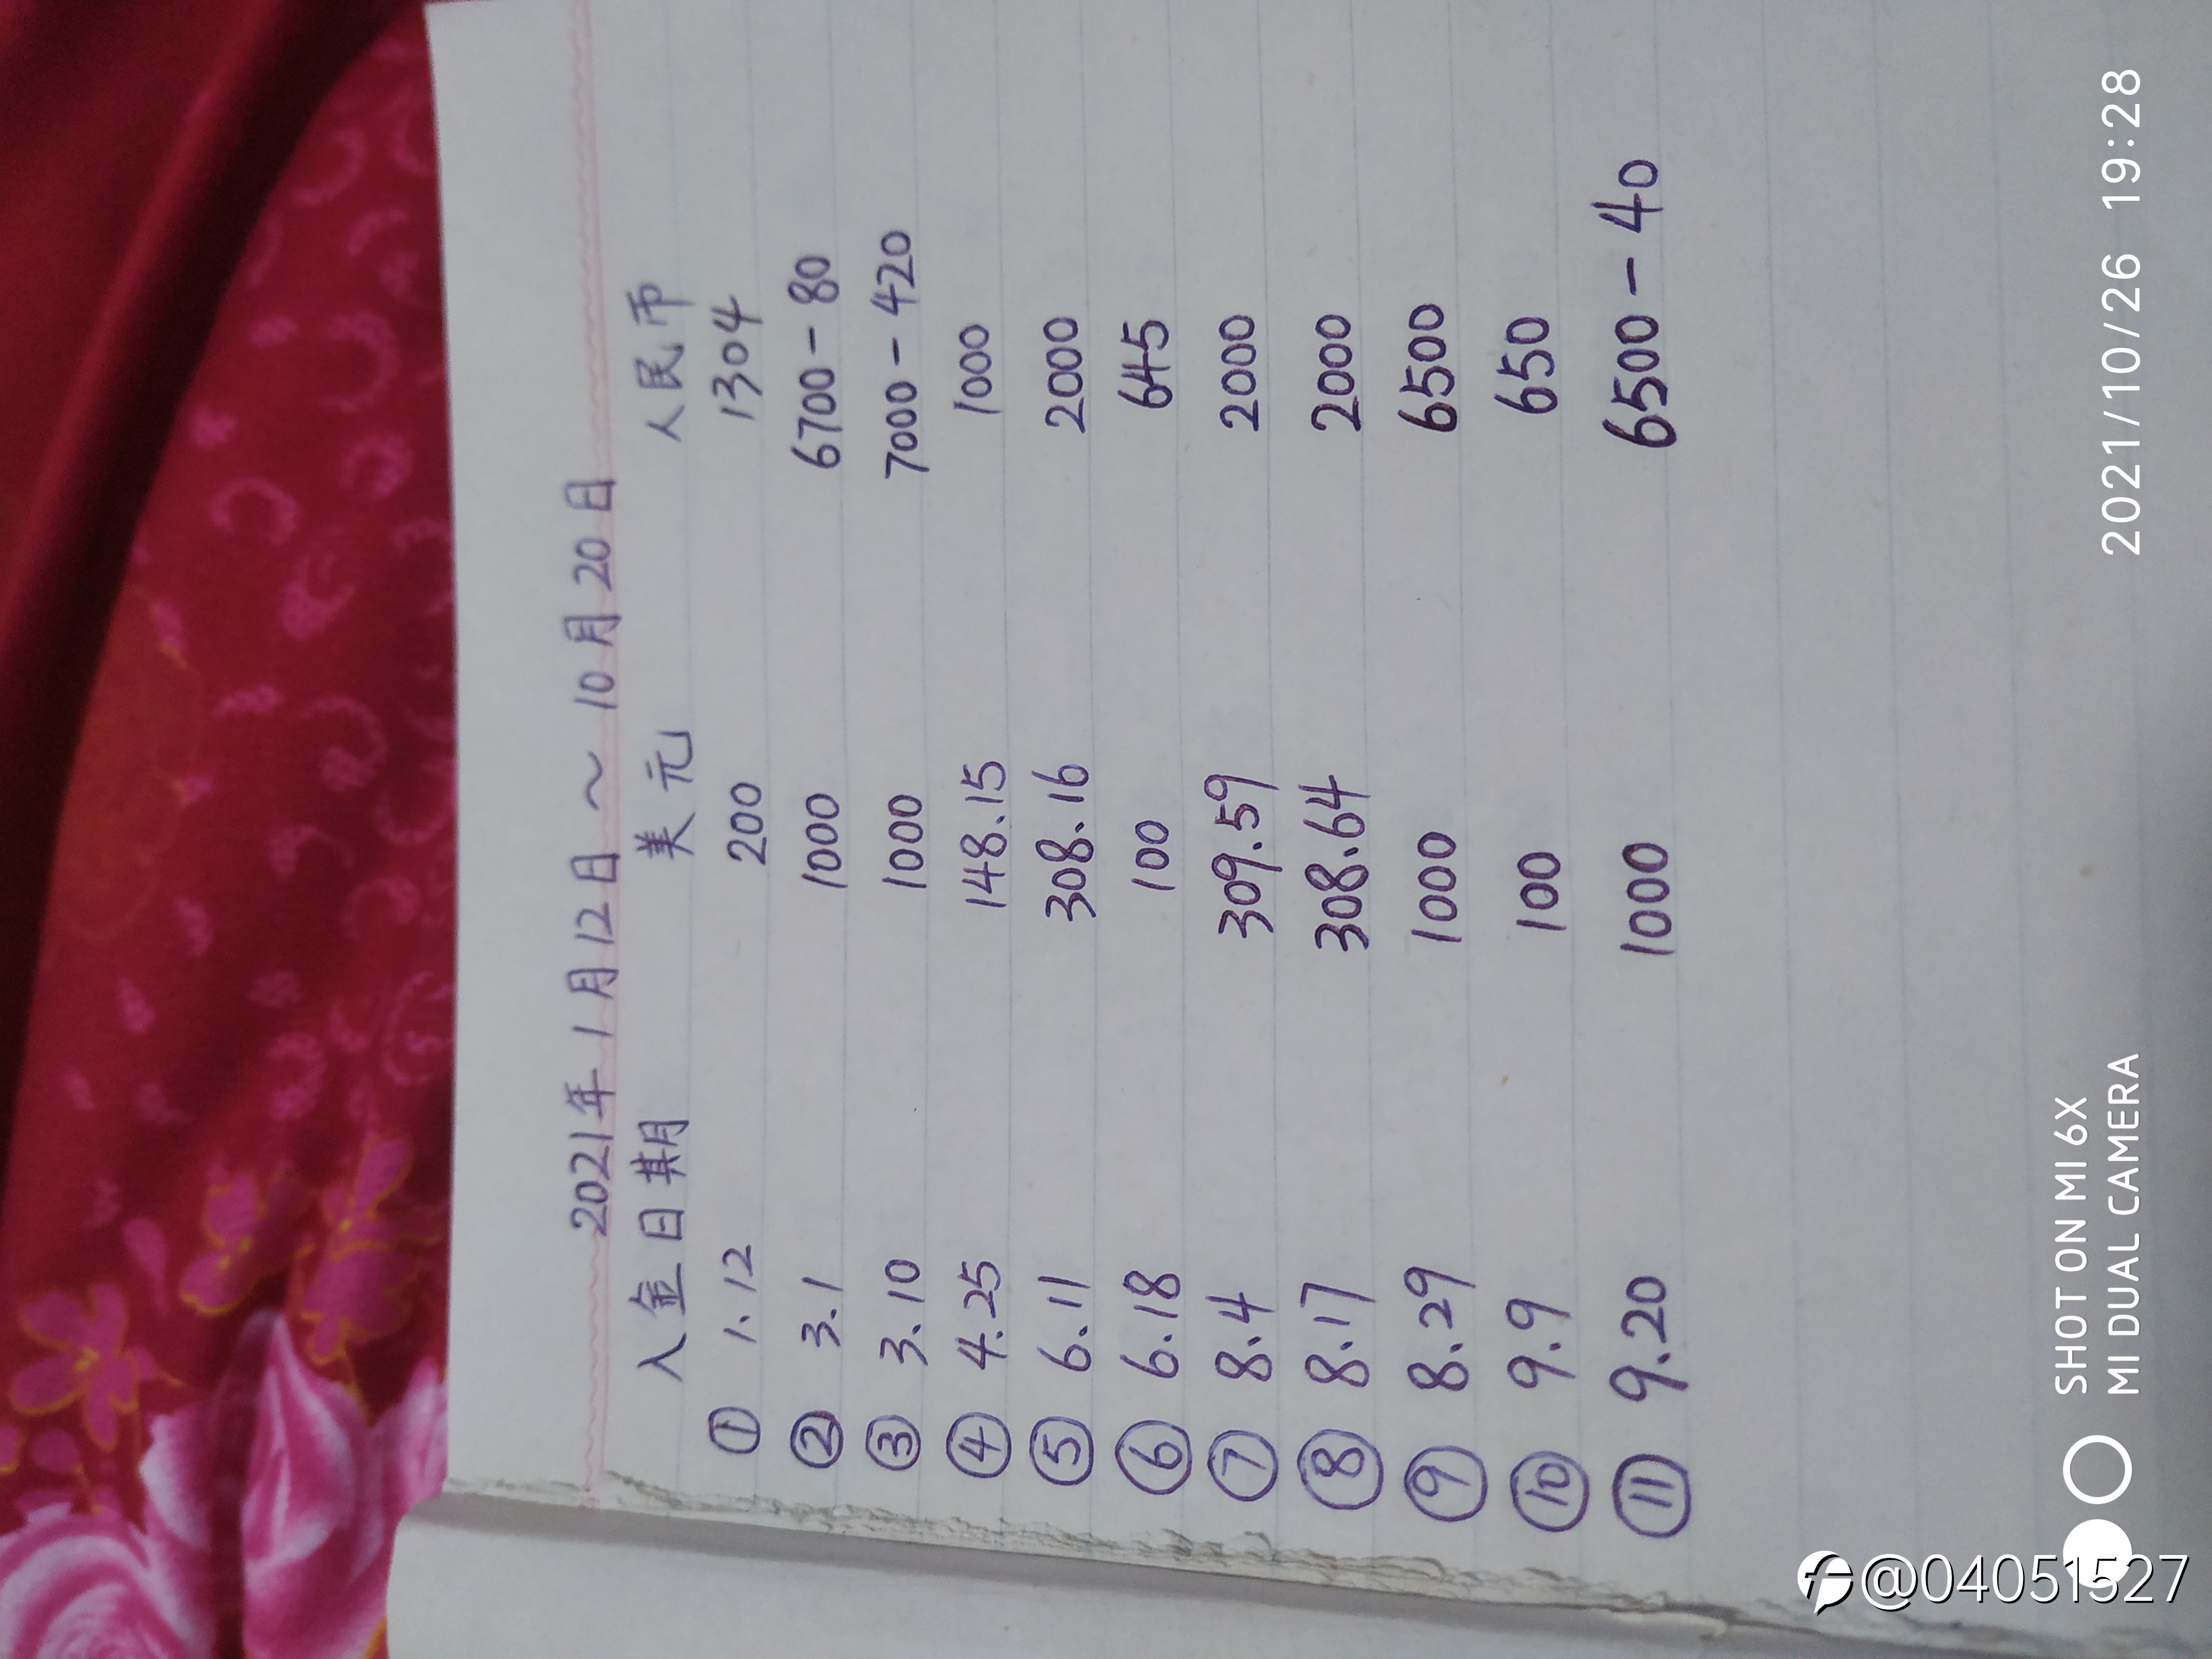 2021年1月12日~10月20日
入金日期 美元 人民币
① 1.12 200 1304
② 3.1 1000 6700-80
③ 3.10 1000 7000-420
④ 4.25 148.15 1000
⑤ 6.11 308.16 2000
⑥ 6.18 100 645
⑦ 8.4 309.59 2000
⑧ 8.17 308.64 2000
⑨ 8.29 1000 6500
⑩ 9.9 100 650
⑪ 9.20 1000 6500-40
SHOT ON MI 6X
MI DUAL CAMERA
2021/10/26 19:28
@04051527